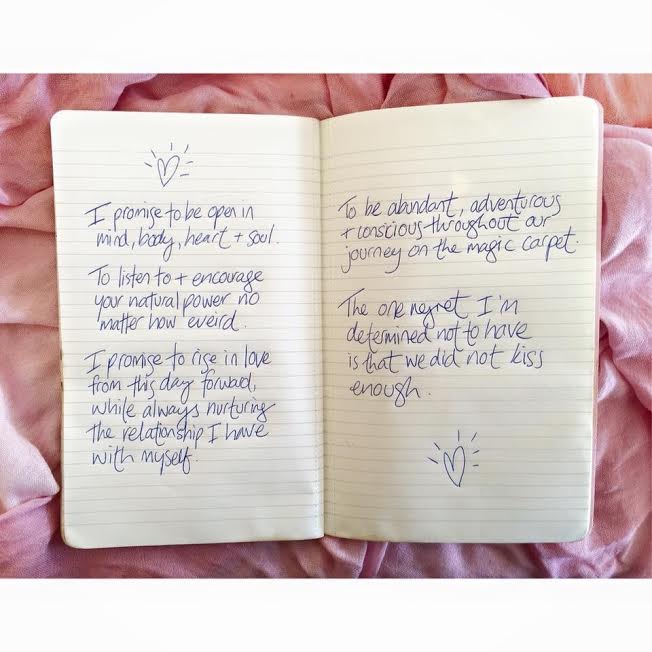 I promise to be open in
mind, body, heart + soul.
To listen to + encourage
your natural power no
matter how weird.
I promise to rise in love
from this day forward,
while always nurturing
the relationship I have
with myself.
To be abundant, adventurous
+ conscious throughout our
journey on the magic carpet.
The one regret I'm
determined not to have
is that we did not kiss
enough.